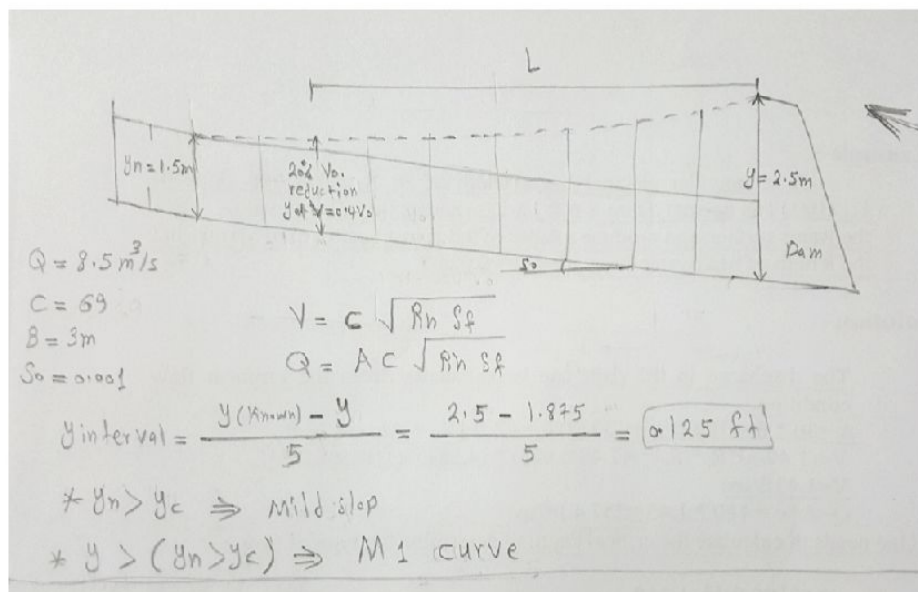 L
yn = 1.5m
20% Vo.
reduction
y = 2.5m
Dam
So
Q = 8.5 m³/s
C = 69
B = 3m
So = 0.001
V = C √ Rh Sf
Q = A C √ Rh Sf
y interval = y(known) - y / 5 = 2.5 - 1.875 / 5 = 0.125 ft
* yn > yc ⇒ Mild slop
* y > (yn > yc) ⇒ M1 curve